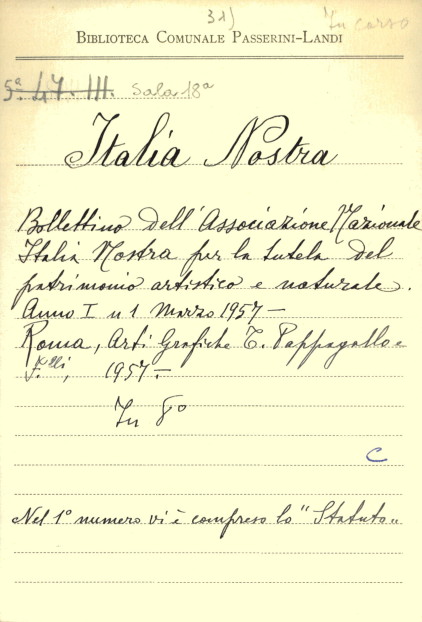 31) In corso
BIBLIOTECA COMUNALE PASSERINI-LANDI
5ª. 47. III. Sala 18ª
Italia Nostra
Bollettino dell'Associazione Nazionale
Italia Nostra per la tutela del
patrimonio artistico e naturale.
Anno I n 1 Marzo 1957 –
Roma, Arti Grafiche T. Pappagallo e
F.lli, 1957. –
In 8º
C
Nel 1º numero vi è compreso lo "Statuto„